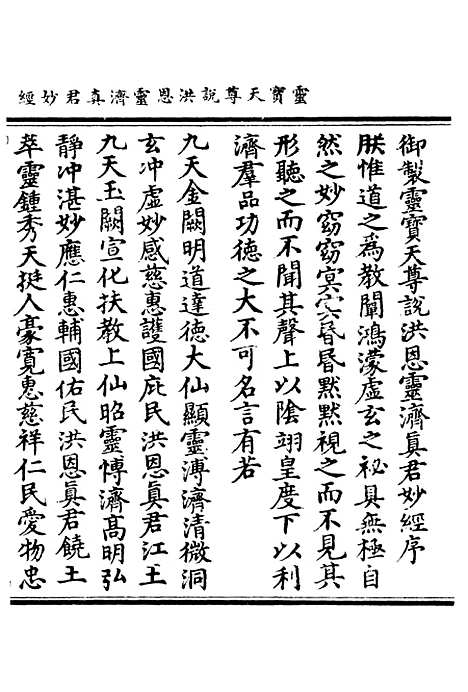 靈寶天尊說洪恩靈濟真君妙經
御製靈寶天尊說洪恩靈濟真君妙經序
朕惟道之為教闡鴻濛虛玄之祕具無極自
然之妙窈窈冥冥昏昏默默視之而不見其
形聽之而不聞其聲上以陰翊皇度下以利
濟羣品功德之大不可名言有若
九天金闕明道達德大仙顯靈溥濟清微洞
玄冲虛妙感慈惠護國庇民洪恩真君江王
九天玉闕宣化扶教上仙昭靈博濟高明弘
靜冲湛妙應仁惠輔國佑民洪恩真君饒王
萃靈鍾秀天挺人豪寬惠慈祥仁民愛物忠